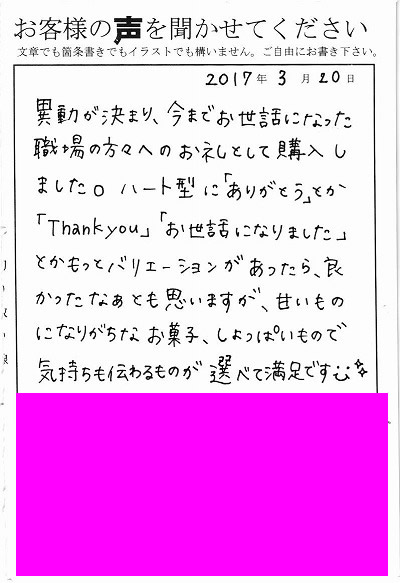 お客様の声を聞かせてください
文章でも箇条書きでもイラストでも構いません。ご自由にお書き下さい。
2017年 3月 20日
異動が決まり、今までお世話になった
職場の方々へのお礼として購入し
ました。ハート型に「ありがとう」とか
「Thank you」「お世話になりました」
とかもっとバリエーションがあったら、良
かったなぁとも思いますが、甘いもの
になりがちなお菓子、しょっぱいもので
気持ちも伝わるものが選べて満足です